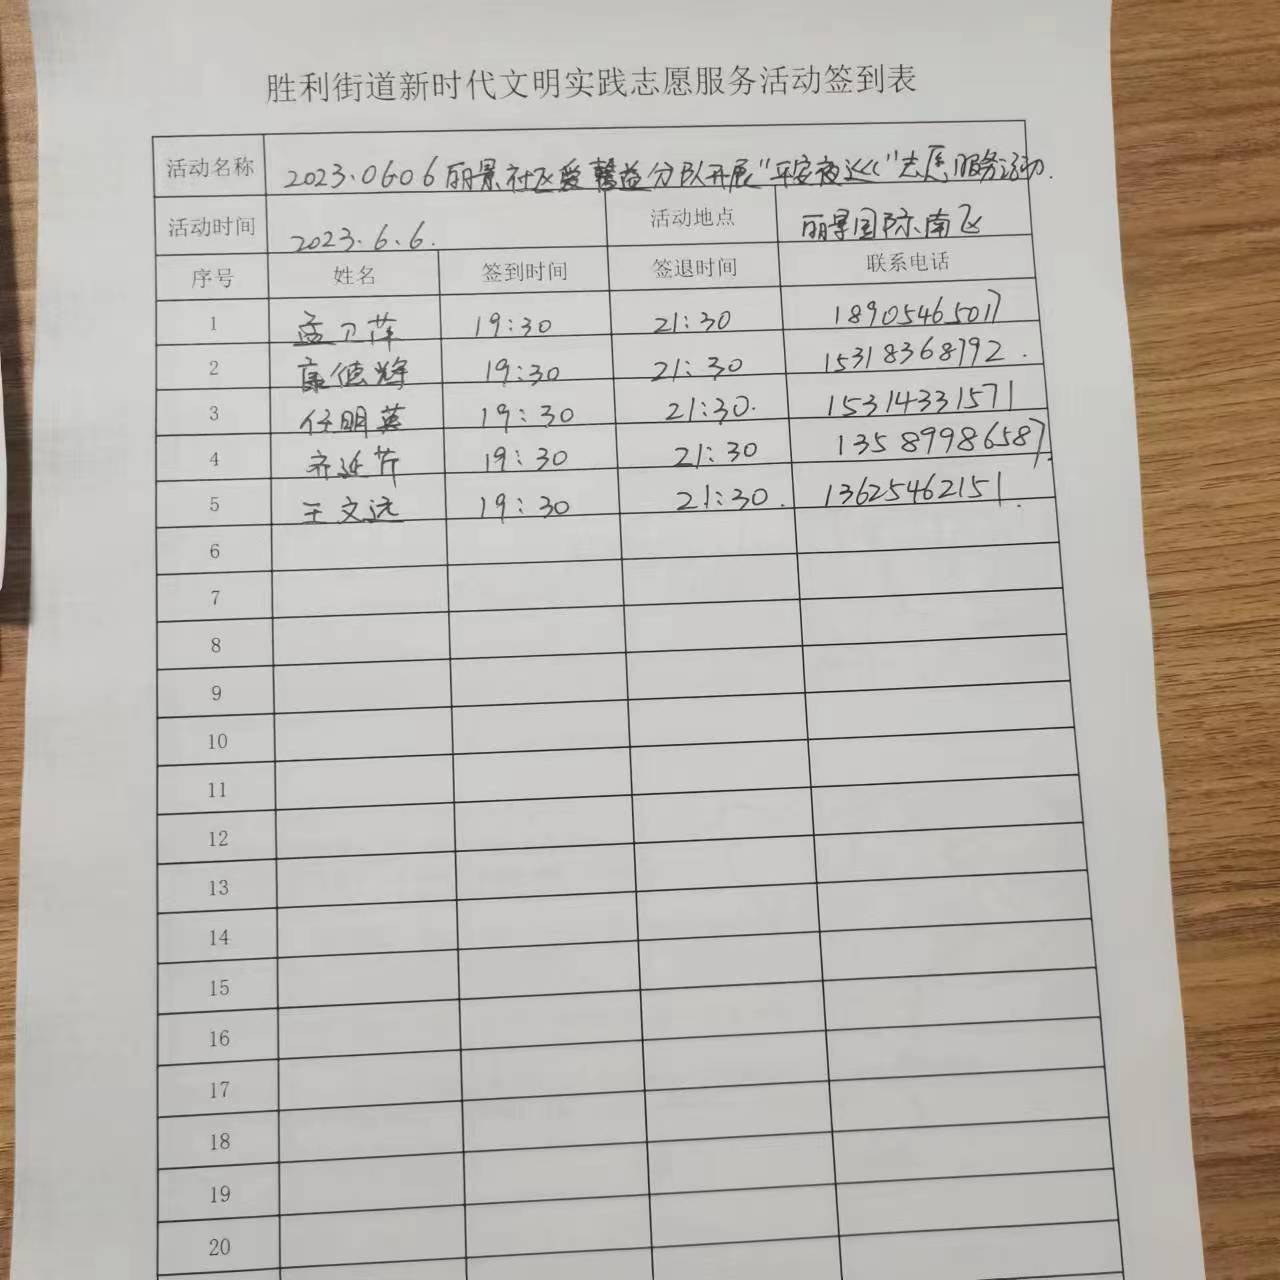 胜利街道新时代文明实践志愿服务活动签到表
活动名称 2023.0606丽景社区爱馨益分队开展“平安夜巡”志愿服务活动.
活动时间 2023.6.6. 活动地点 丽景国际、南区
序号 姓名 签到时间 签退时间 联系电话
1 孟卫萍 19:30 21:30 18905465017
2 康德辉 19:30 21:30 15318368792.
3 任明英 19:30 21:30. 15314331571
4 齐延芹 19:30 21:30 13589986587.
5 王文远 19:30 21:30. 13625462151.
6
7
8
9
10
11
12
13
14
15
16
17
18
19
20